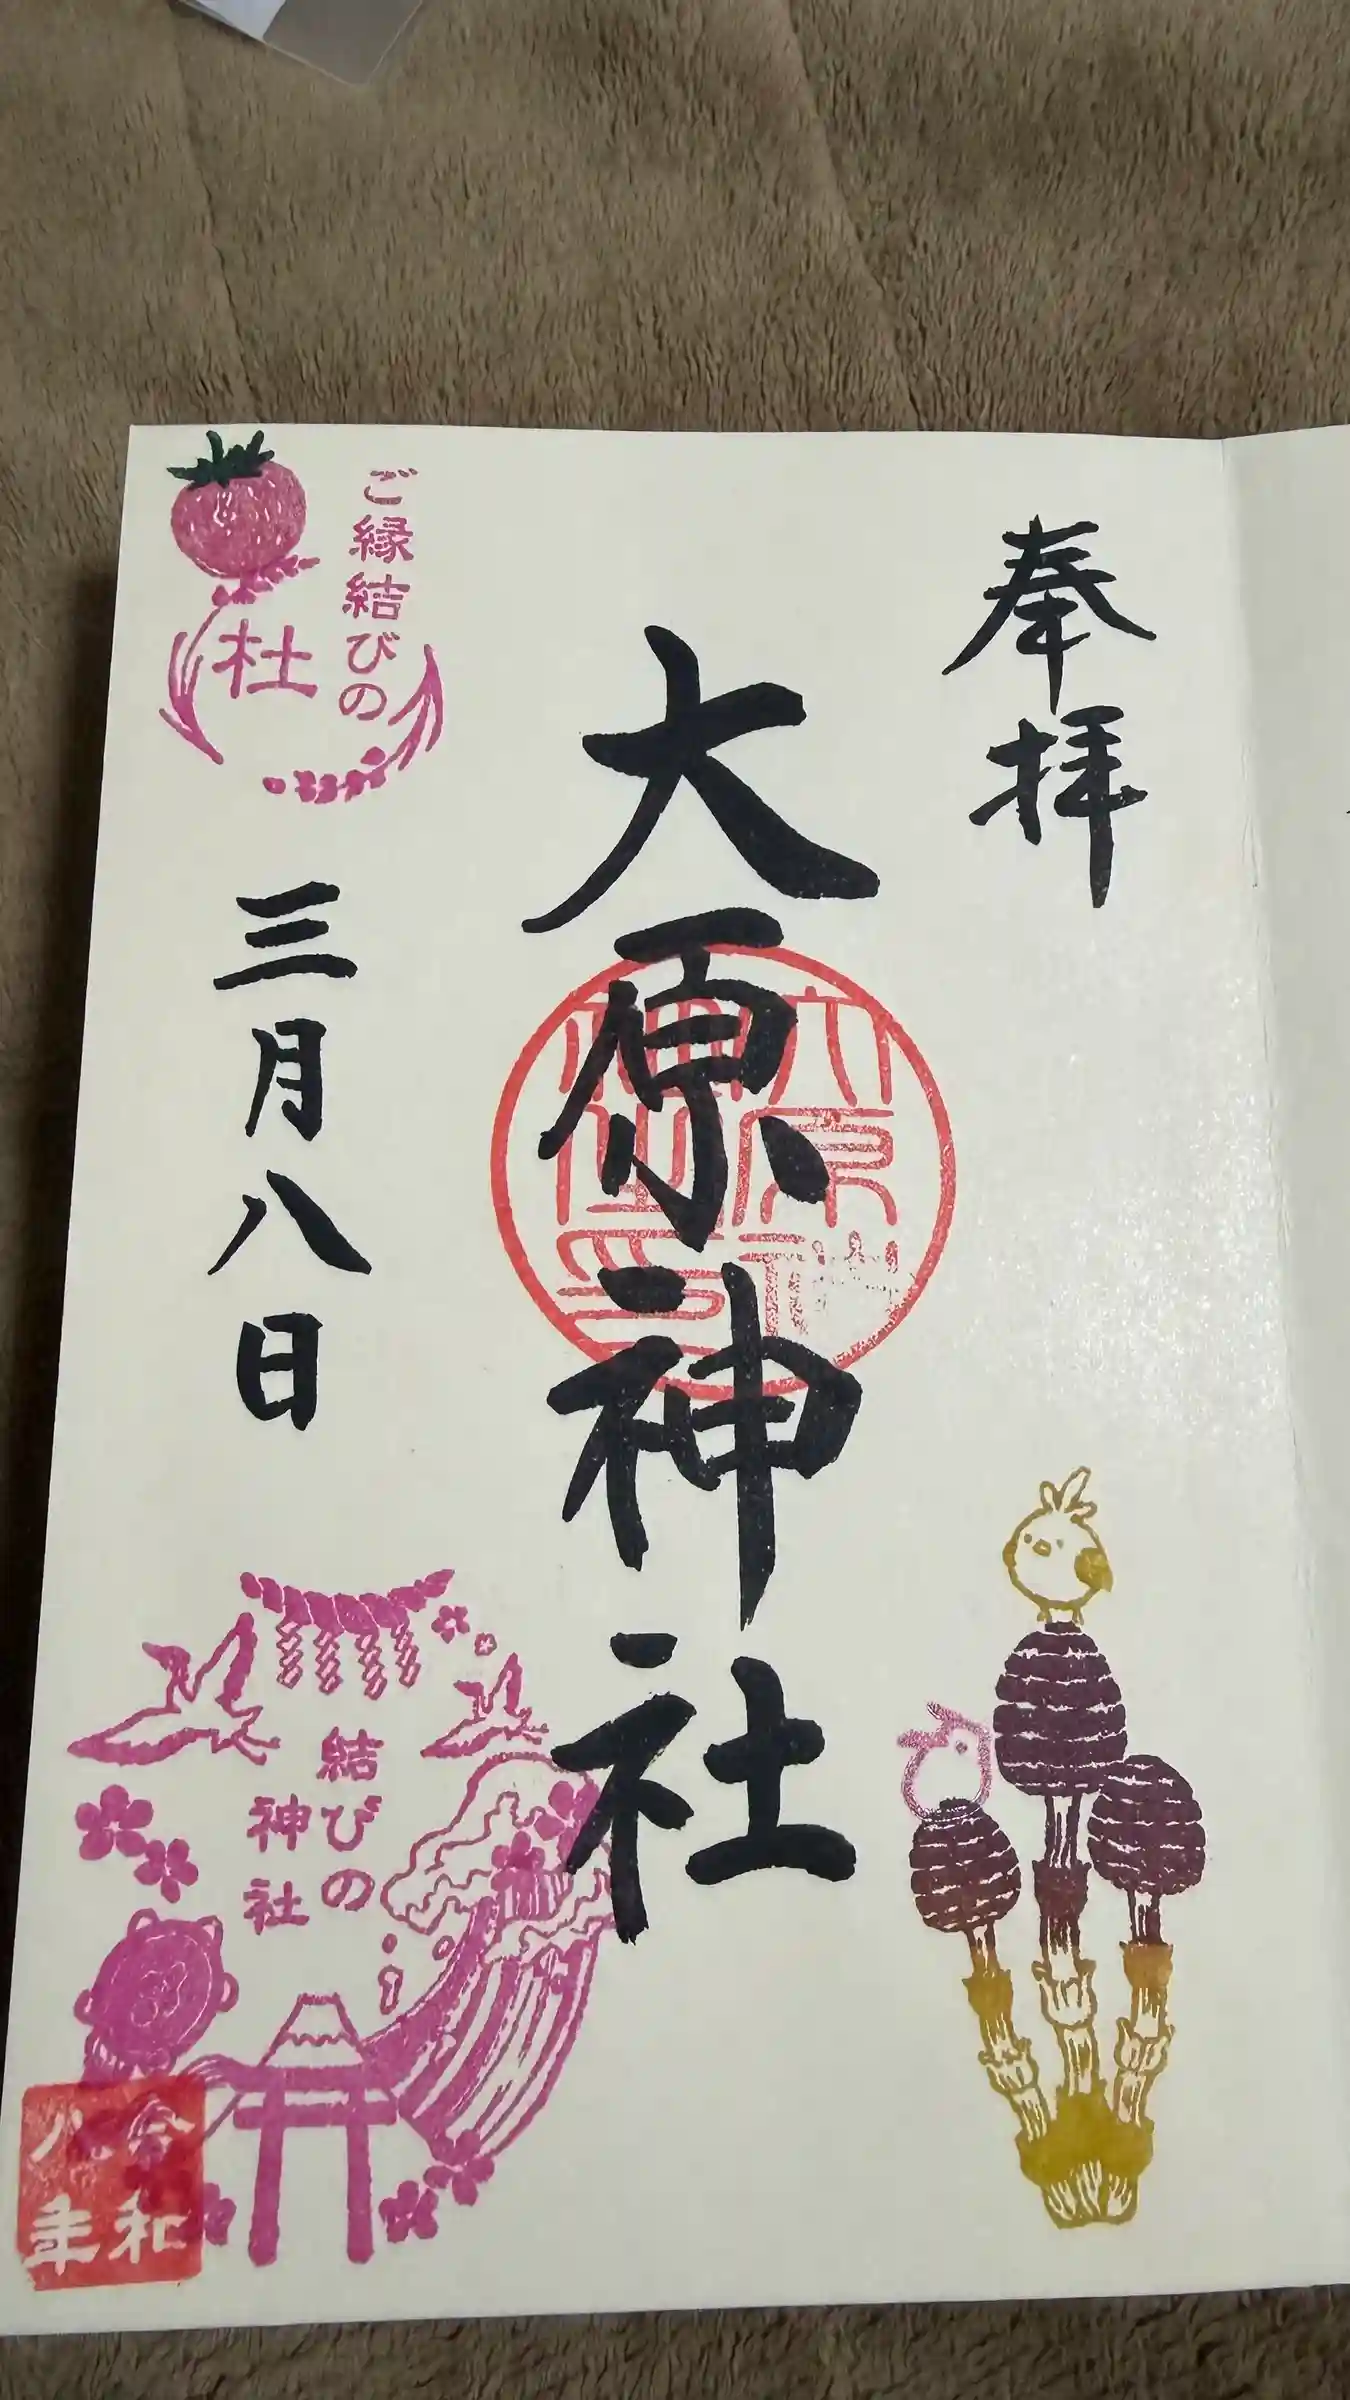 奉拝
大原神社
三月八日
ご縁結びの
杜
結びの
神社
令和
八年